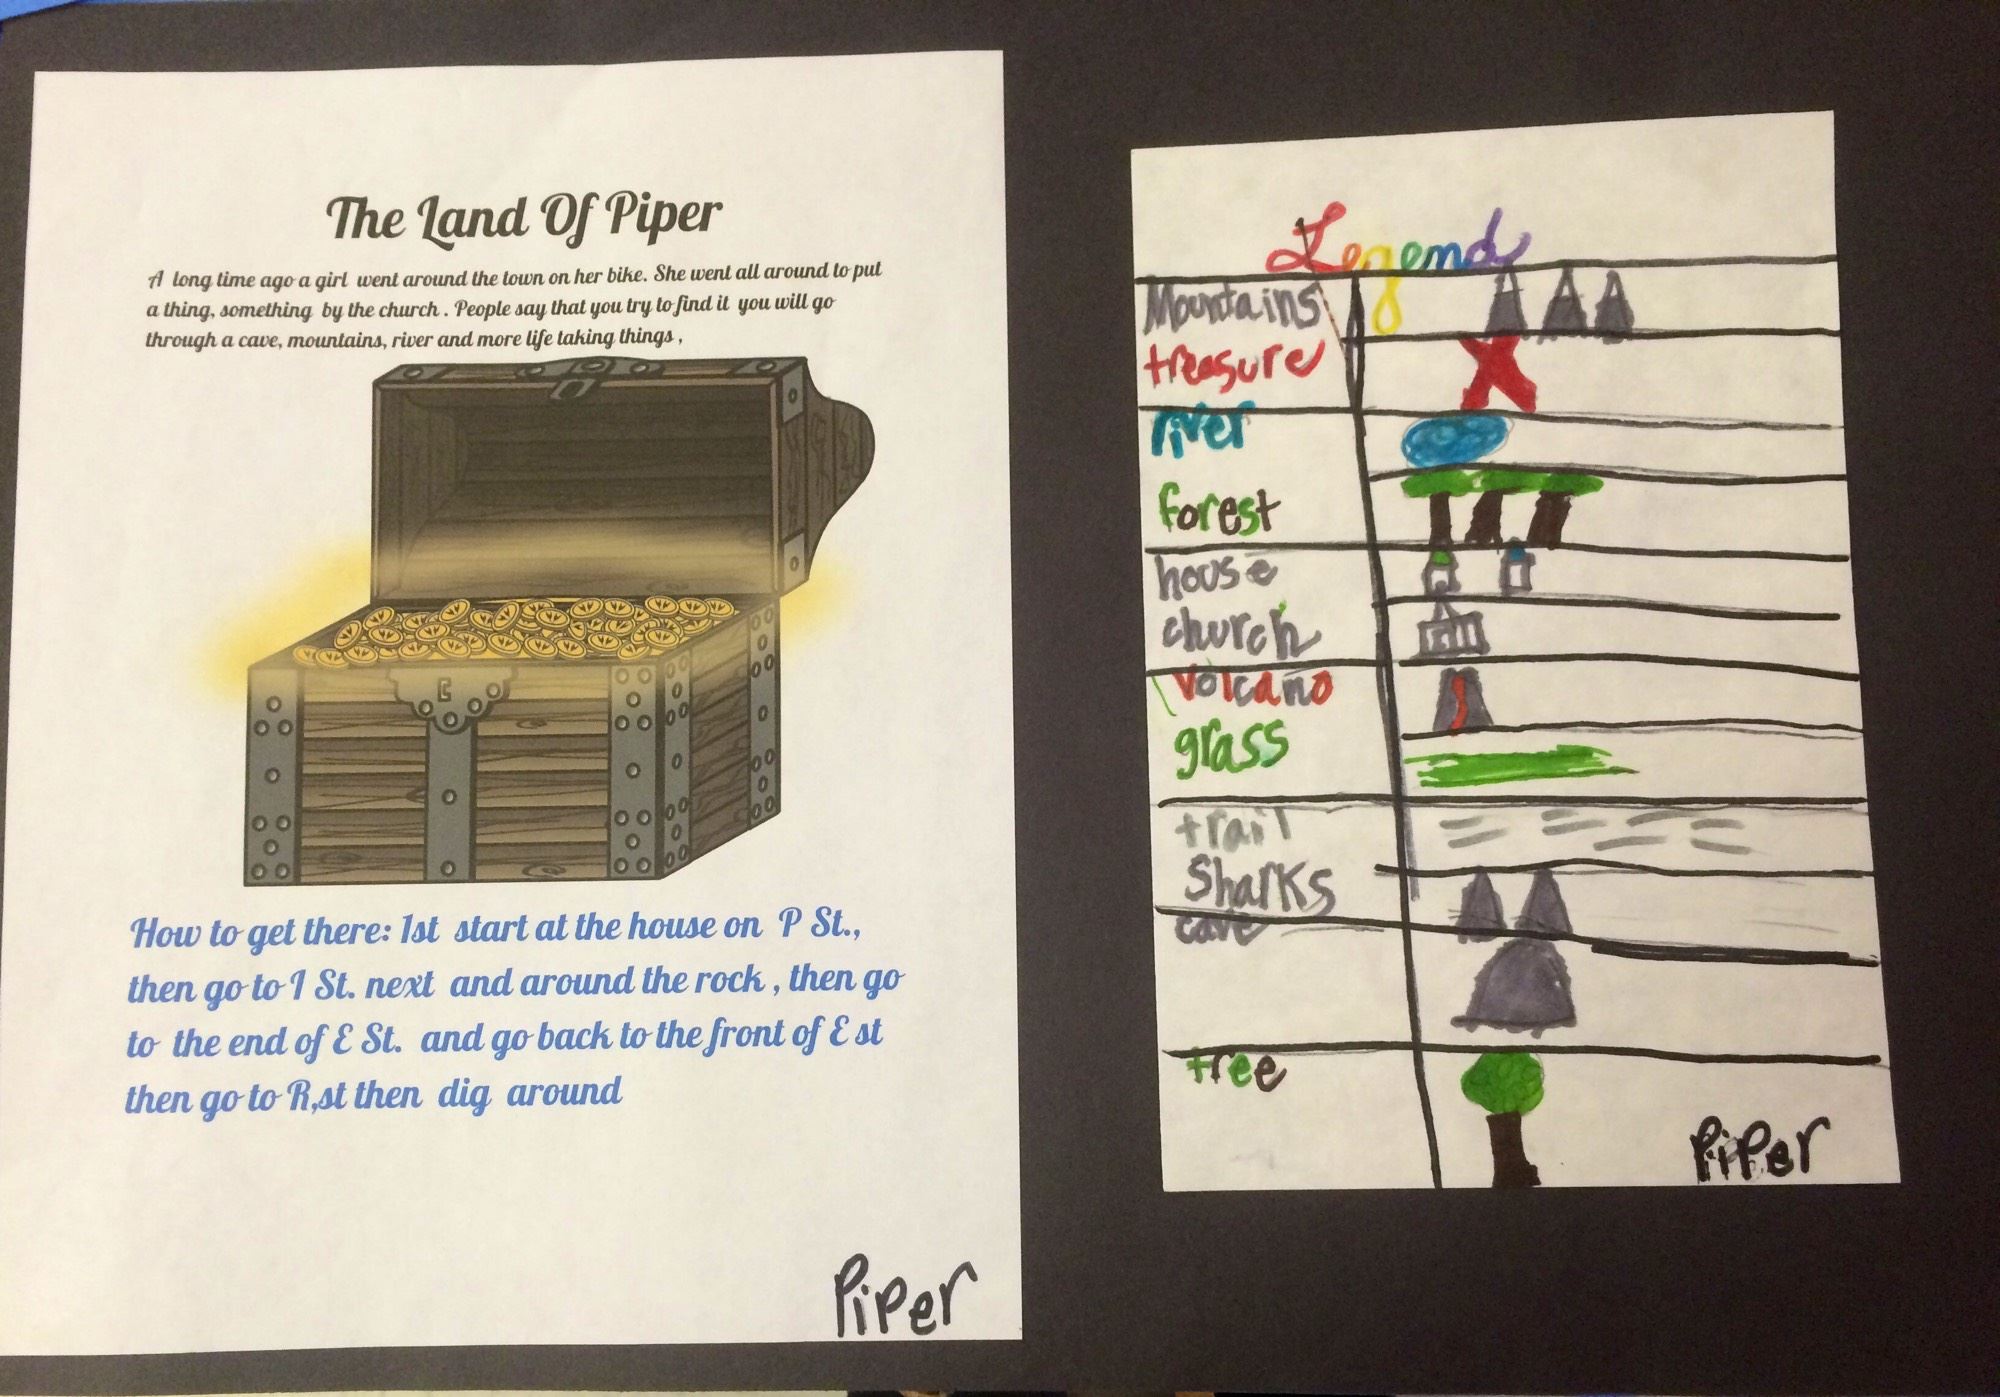 The Land Of Piper
A long time ago a girl went around the town on her bike. She went all around to put
a thing, something by the church. People say that you try to find it you will go
through a cave, mountains, river and more life taking things,
How to get there: 1st start at the house on P St.,
then go to I St. next and around the rock, then go
to the end of E St. and go back to the front of E st
then go to R,st then dig around
Piper
Legend
Mountains
treasure
river
forest
house
church
volcano
grass
trail
Sharks
cave
tree
PiPer